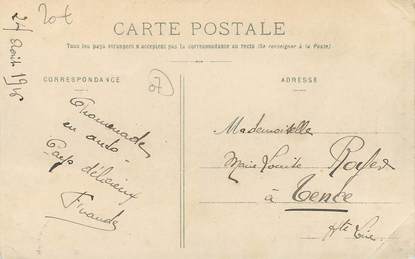 20t
24 Août 1918
CARTE POSTALE
Tous les pays étrangers n'acceptent pas la correspondance au recto (Se renseigner à la Poste)
CORRESPONDANCE
ADRESSE
07
Promenade
en auto
Pays délicieux
Mademoiselle
Marie Louise
à Tence
Hte Loire